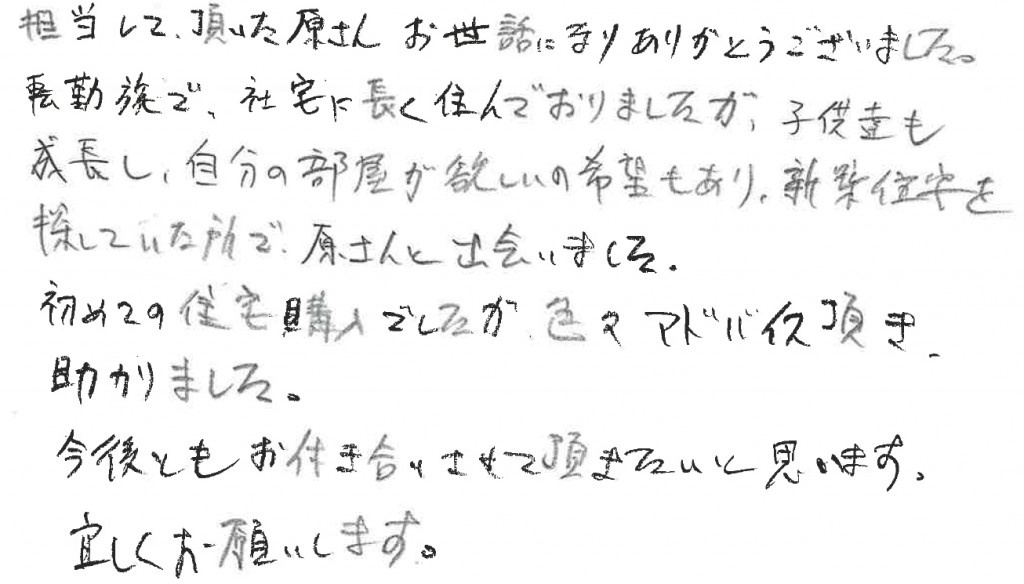 担当して、頂いた原さん お世話になりありがとうございました。
転勤族で、社宅に長く住んでおりましたが、子供達も
成長し、自分の部屋が欲しいの希望もあり、新築住宅を
探していた所で、原さんと出会いました。
初めての住宅購入でしたが、色々アドバイス頂き、
助かりました。
今後ともお付き合いさせて頂きたいと思います。
宜しくお願いします。